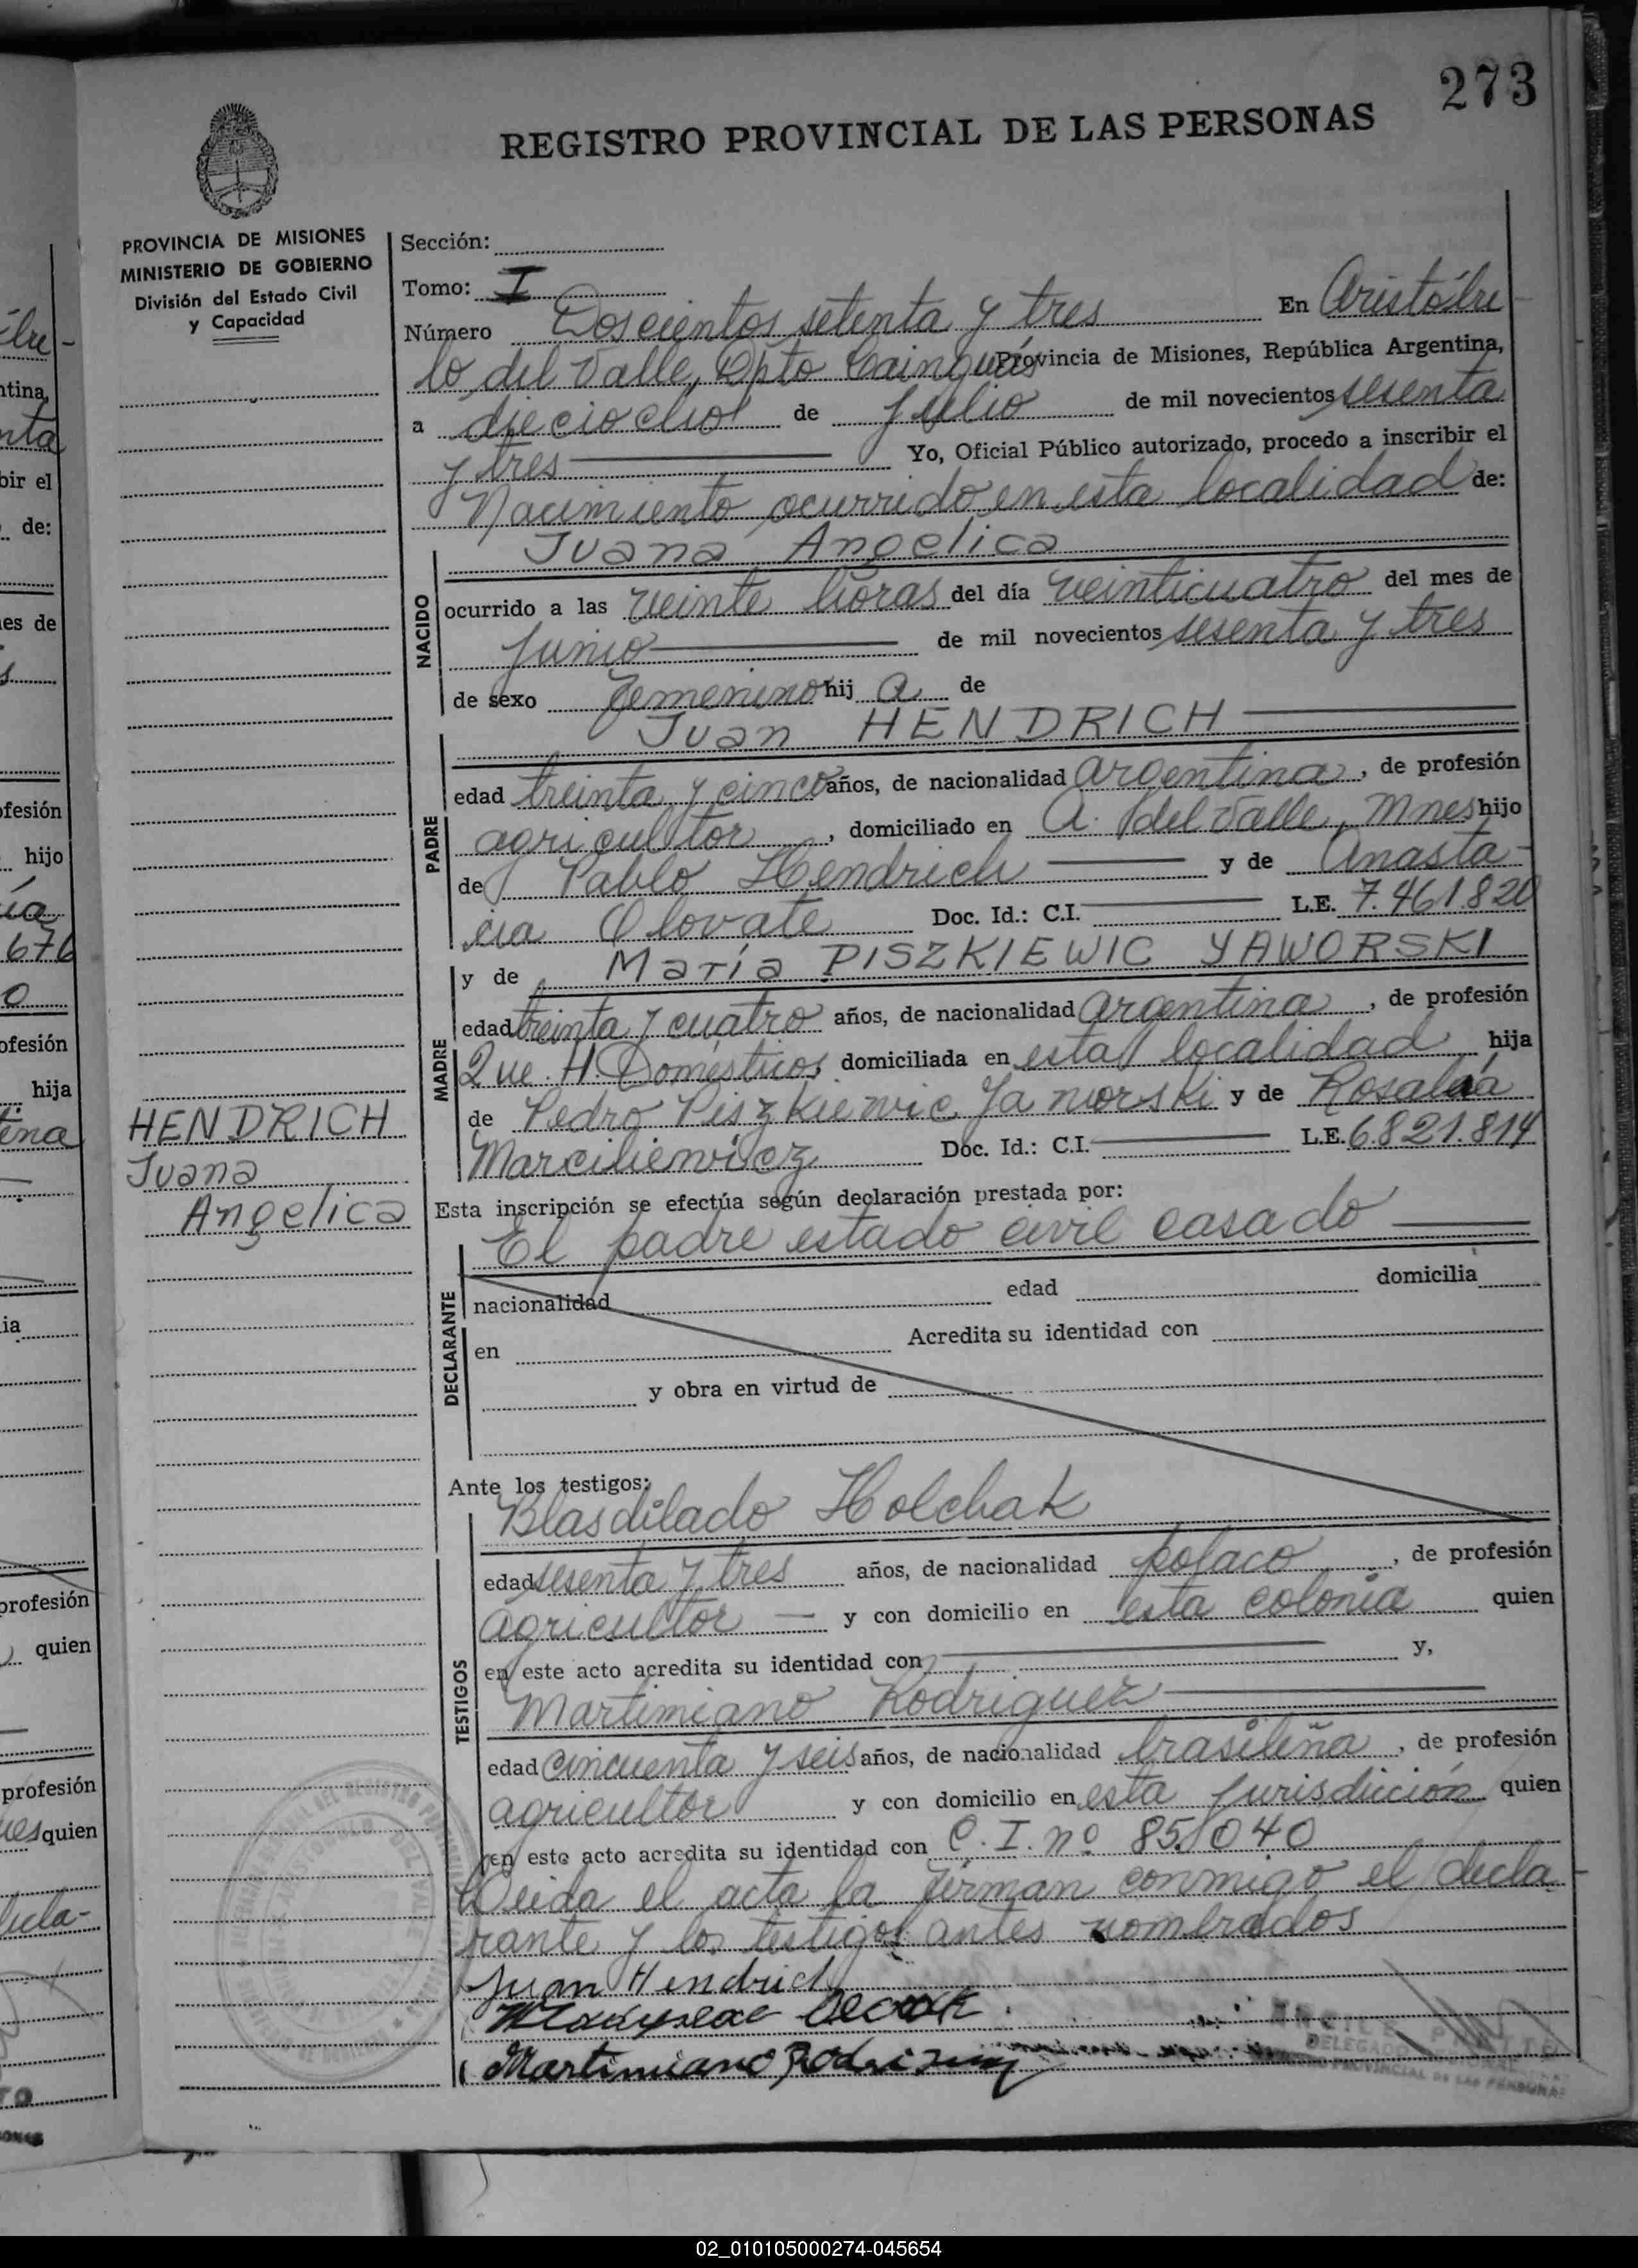 273
REGISTRO PROVINCIAL DE LAS PERSONAS
PROVINCIA DE MISIONES
MINISTERIO DE GOBIERNO
División del Estado Civil
y Capacidad
Sección:
Tomo: I
Número Doscientos setenta y tres En Aristóbu
lo del Valle, Dpto Cainguás Provincia de Misiones, República Argentina,
a dieciocho de Julio de mil novecientos sesenta
y tres Yo, Oficial Público autorizado, procedo a inscribir el
Nacimiento ocurrido en esta localidad de:
Juana Angelica
NACIDO
ocurrido a las veinte horas del día veinticuatro del mes de
Junio de mil novecientos sesenta y tres
de sexo femenino hij a de
Juan HENDRICH
PADRE
edad treinta y cinco años, de nacionalidad argentina, de profesión
agricultor, domiciliado en A. del Valle, Mnes hijo
de Pablo Hendrich y de Anasta-
cia Olovate Doc. Id.: C.I. L.E. 7.461.820
y de María PISZKIEWIC YAWORSKI
MADRE
edad treinta y cuatro años, de nacionalidad argentina, de profesión
Que. H. Domésticos domiciliada en esta localidad hija
de Pedro Piszkiewic Jaworski y de Rosalía
Marciliewicz Doc. Id.: C.I. L.E. 6.821.814
HENDRICH
Juana
Angelica
Esta inscripción se efectúa según declaración prestada por:
El padre estado civil casado
DECLARANTE
nacionalidad edad domicilia
en Acredita su identidad con
y obra en virtud de
Ante los testigos:
Blasdilado Holchak
TESTIGOS
edad sesenta y tres años, de nacionalidad polaco, de profesión
agricultor y con domicilio en esta colonia quien
en este acto acredita su identidad con y,
Martimiano Rodriguez
edad cincuenta y seis años, de nacionalidad brasileña, de profesión
agricultor y con domicilio en esta jurisdicción quien
en este acto acredita su identidad con C. I. nº 85.040
Leida el acta la firman conmigo el decla-
rante y los testigos antes nombrados
Juan Hendrich
Martimiano Rodriguez
DELEGADO
PROVINCIAL DE LAS PERSONAS
02_010105000274-045654